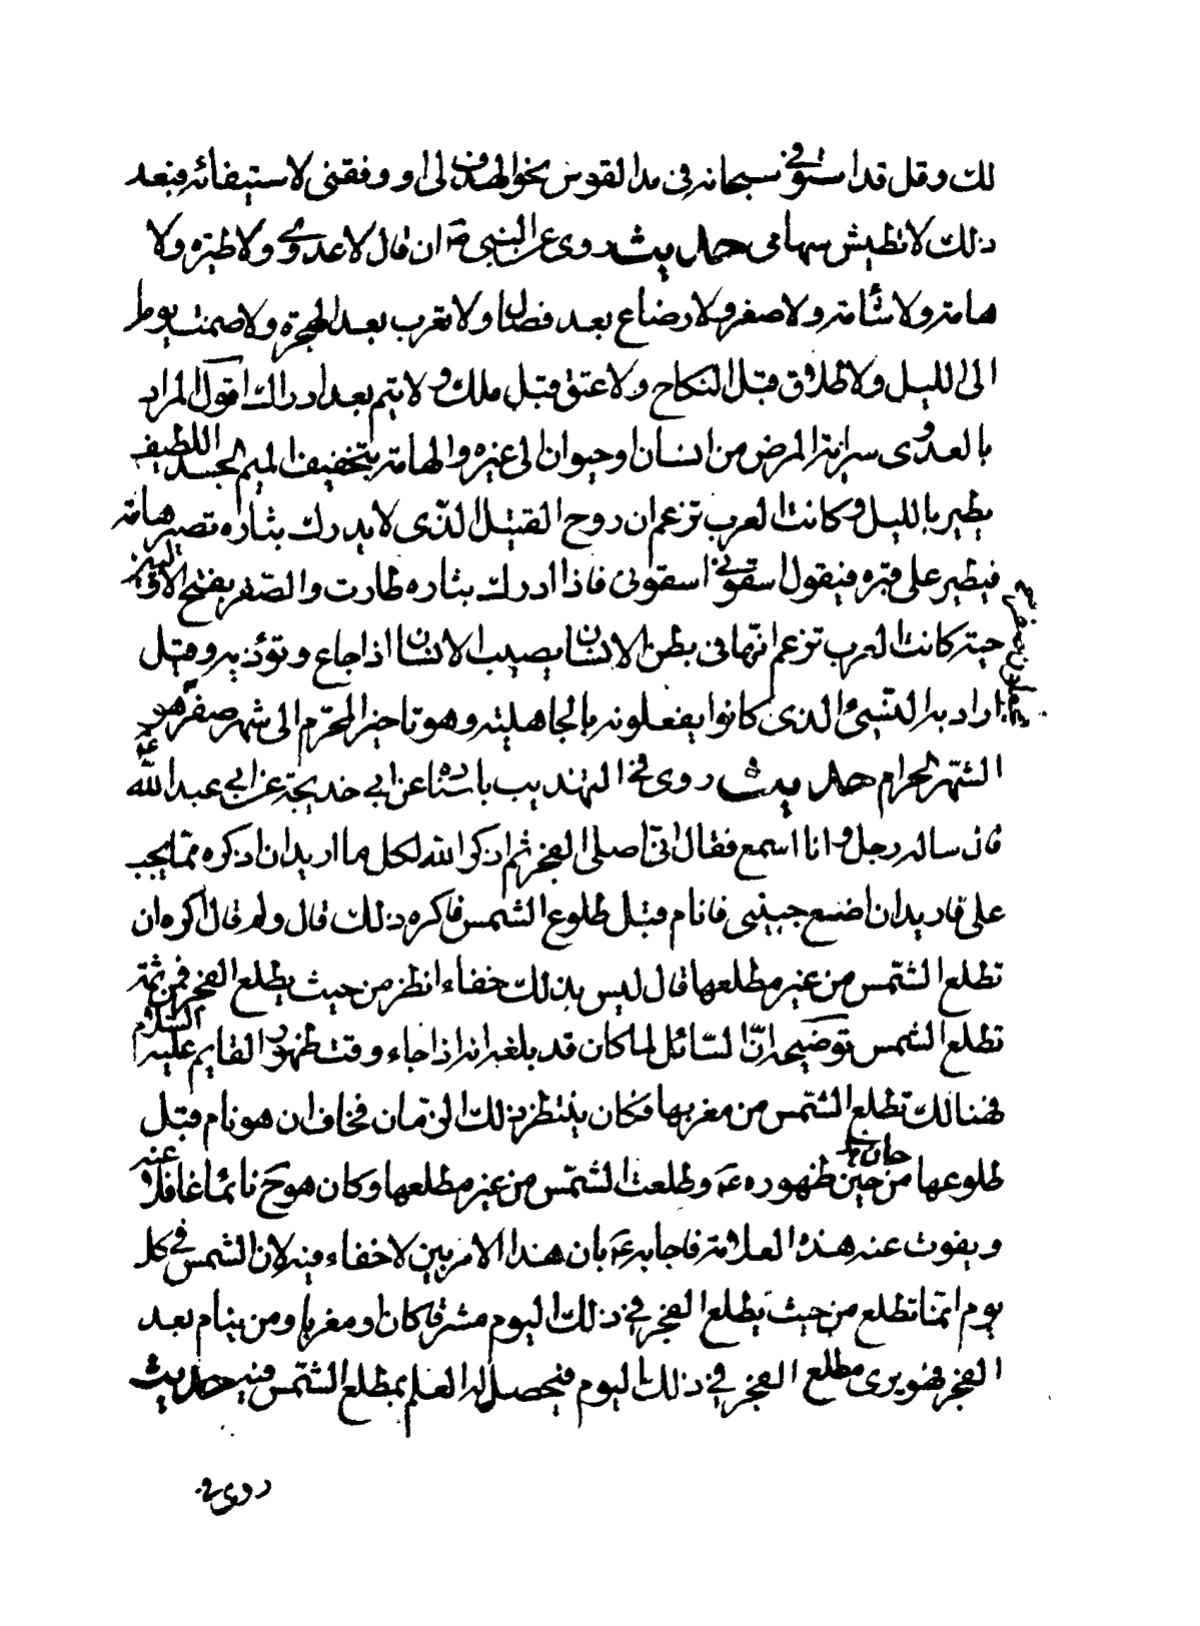 لك وقل قد استوفى سبحانه فى مد القوس نحو الهدف لى او وفقنى لاستيفائه فبعد
ذلك لا تطيش سهامى حديث روى عن النبى ص ان قال لا عدوى ولا طيره ولا
هامته ولا شامته ولا صفر ولا رضاع بعد فصال ولا تعرب بعد الهجرة ولا صمت يوما
الى الليل ولا طلاق قبل النكاح ولا عتق قبل ملك ولا يتم بعد ادراك اقول المراد
بالعدوى سراية المرض من انسان او حيوان الى غيره والهامة بتخفيف الميم الجسد اللطيف
يطير بالليل وكانت العرب تزعم ان روح القتيل الذى لا يدرك بثاره تصير هامة
فيطير على قبره فيقول اسقونى اسقونى فاذا ادرك بثاره طارت والصفر بفتح الاولين
حية كانت العرب تزعم انها فى بطن الانسان يصيب الانسان اذا جاع وتوذيه وقيل
اراد به النسىء الذى كانوا يفعلونه بالجاهلية وهو تاخير المحرم الى شهر صفر هو
الشهر الحرام حديث روى فى التهذيب باسناده عن ابى خديجة عن ابى عبد الله ع
قال ساله رجل وانا اسمع فقال انى اصلى الفجر ثم اذكر الله لكل ما اريد ان اذكره مما يجب
على فاريد ان اضع جنبى فانام قبل طلوع الشمس فاكره ذلك قال ولم قال اكره ان
تطلع الشمس من غير مطلعها قال ليس بذلك خفاء انظر من حيث يطلع الفجر فمن ثمة
تطلع الشمس توضيحه ان السائل لما كان قد بلغه انه اذا جاء وقت ظهور القايم عليه السلام
فهنالك تطلع الشمس من مغربها فكان ينتظر ذلك الزمان فخاف ان هو نام قبل
طلوعها حان من حين ظهوره ع وطلعت الشمس من غير مطلعها وكان هو ح نائما غافلا عنه
ويفوت عنه هذه العلامة فاجابه ع بان هذا الامر بين لا خفاء فيه لان الشمس فى كل
يوم انما تطلع من حيث يطلع الفجر فى ذلك اليوم مشرقا كان او مغربا ومن ينام بعد
الفجر فهو يرى مطلع الفجر فى ذلك اليوم فيحصل له العلم بمطلع الشمس فيه حديث
روى فى